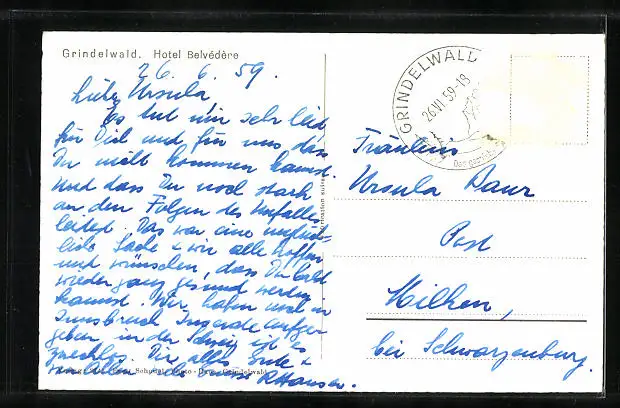 Grindelwald. Hotel Belvédère
26. 6. 59.
Liebe Ursula
Es tut mir sehr leid
für Dich und für uns dass
Du nicht kommen kannst.
Und dass Du noch stark
an den Folgen des Unfalles
leidest. Das war eine unglück-
liche Sache & wir alle hoffen
und wünschen, dass Du bald
wieder ganz gesund werden
kannst. Wir haben noch in
Innsbruck Inserate aufge-
geben in der Schweiz ist es
zwecklos. Dir alles Gute &
R. Hauser.
GRINDELWALD
GRINDELWALD
26.VI.59-18
Fräulein
Ursula Baur
Post
Milken,
bei Schwarzenburg.